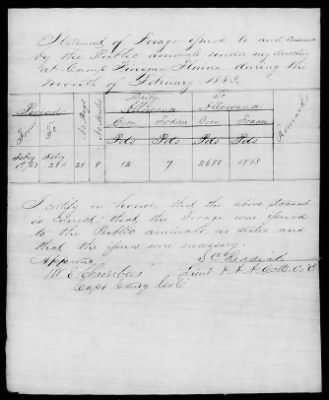 Statement of Forage issued to and consumed
by the Public animals under my direction
at Camp Finegan Florida during the
month of February 1863.
Period
Daily Allowance
Total Allowance
Remarks
From
To
No Days
No Animals
Corn
Fodder
Corn
Fodder
Pds
Pds
Pds
Pds
Feby 1st/63
Feby 28th
28
8
12
7
2688
1568
I certify on honor that the above statement
is correct; that the Forage was issued
to the Public animals as stated and
that the issues were necessary.
Approved
W E Chambers
Capt Comdg
Lieut A. A. Q. M. C. S.